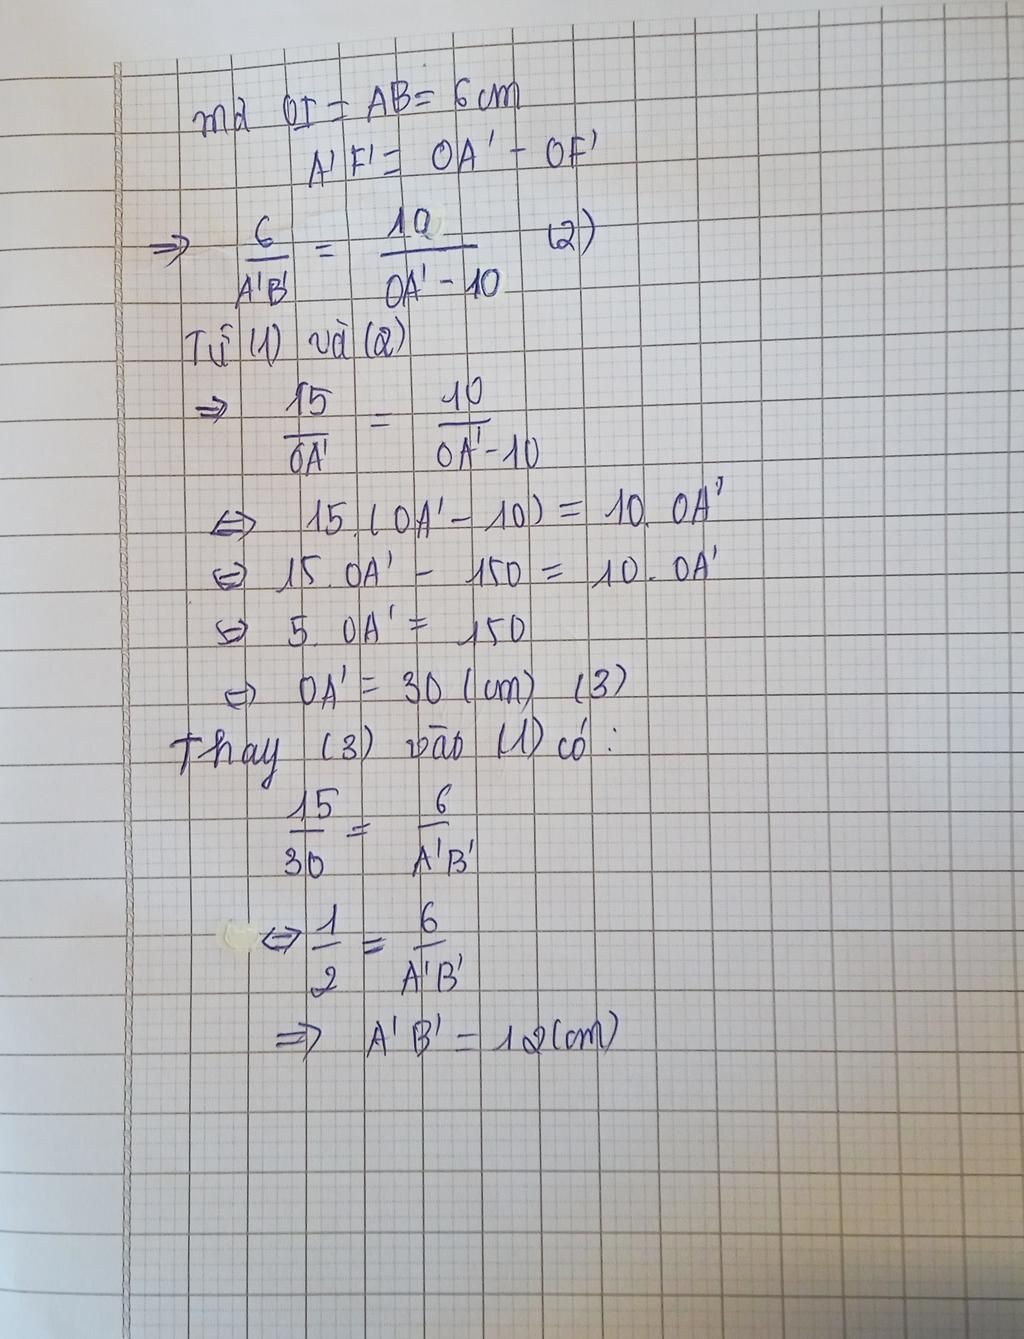 mà OI = AB = 6cm
A'F' = OA' - OF'
⇒ 6/A'B' = 10/OA' - 10 (2)
Từ (1) và (2)
⇒ 15/OA' = 10/OA' - 10
⇔ 15.(OA' - 10) = 10. OA'
⇔ 15. OA' - 150 = 10. OA'
⇔ 5. OA' = 150
⇔ OA' = 30 (cm) (3)
Thay (3) vào (1) có :
15/30 = 6/A'B'
⇔ 1/2 = 6/A'B'
⇒ A'B' = 12(cm)